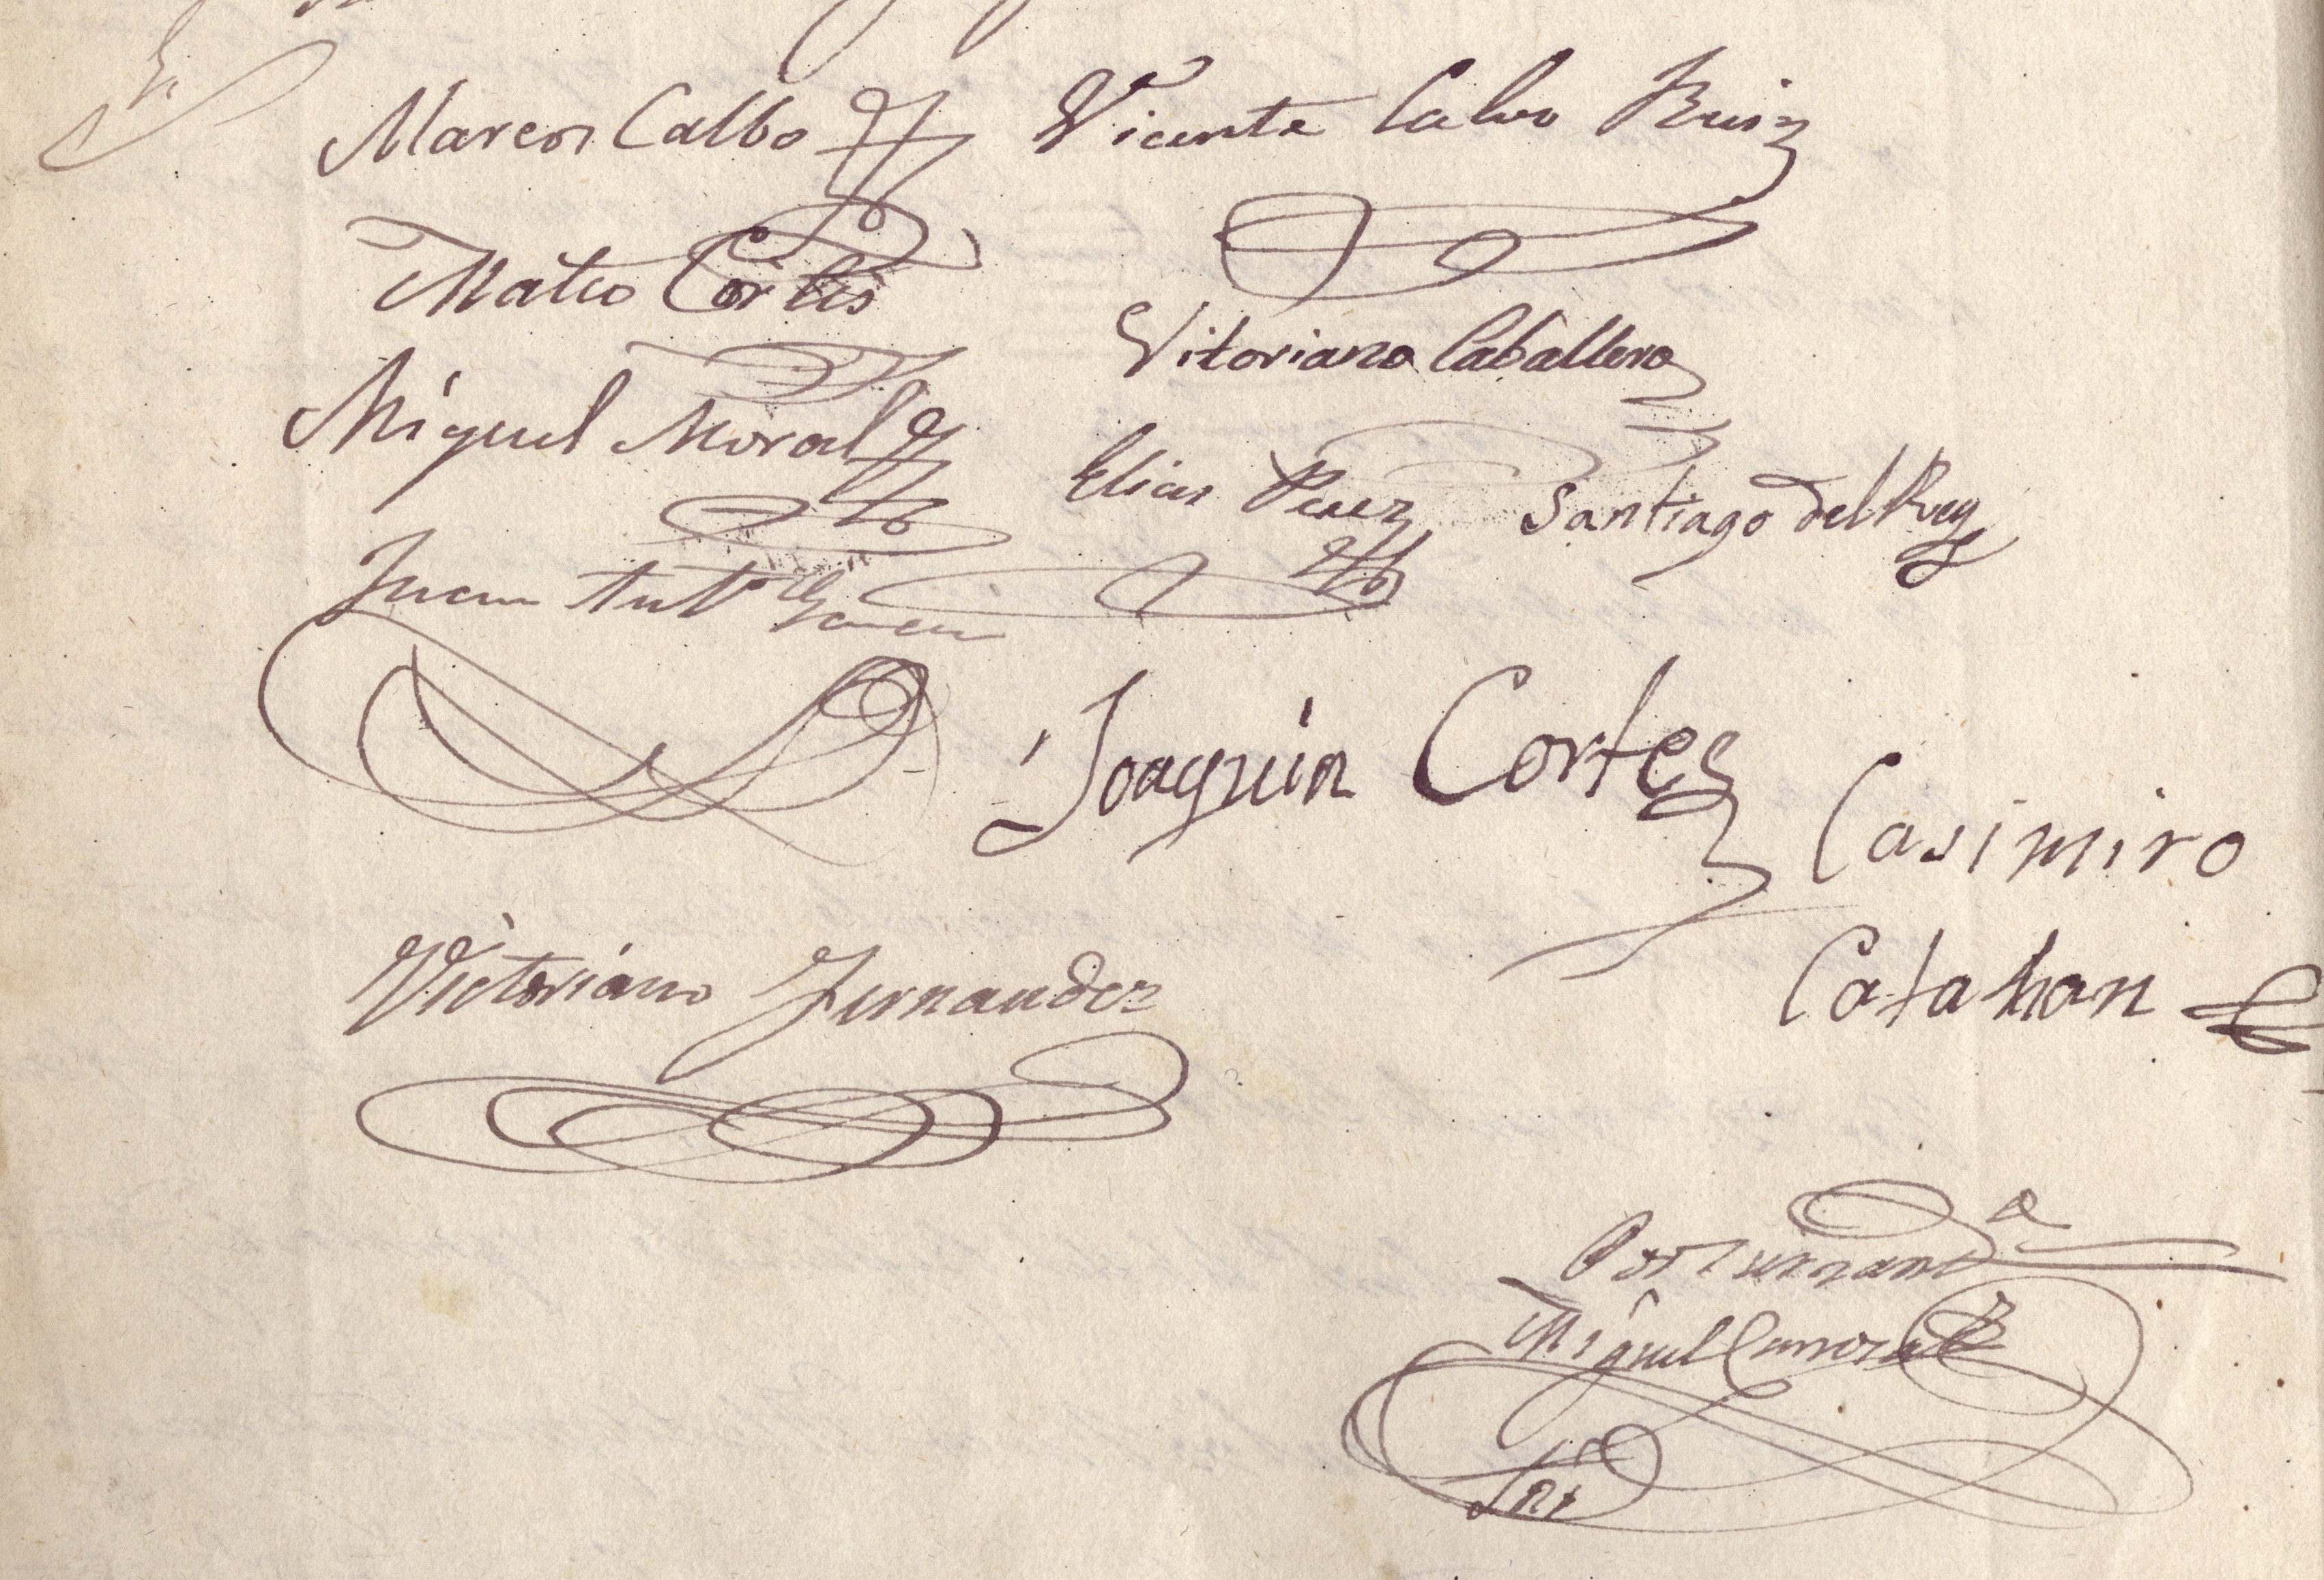 Marcos Calbo Vicente Calvo Ruiz
Mateo Cortés
Vitoriano Caballero
Miguel Moral
Elias Perez Santiago del Rey
Juan Antº
Joaquin Cortes
Casimiro
Victoriano Fernandez
Catahan
Miguel
Srio